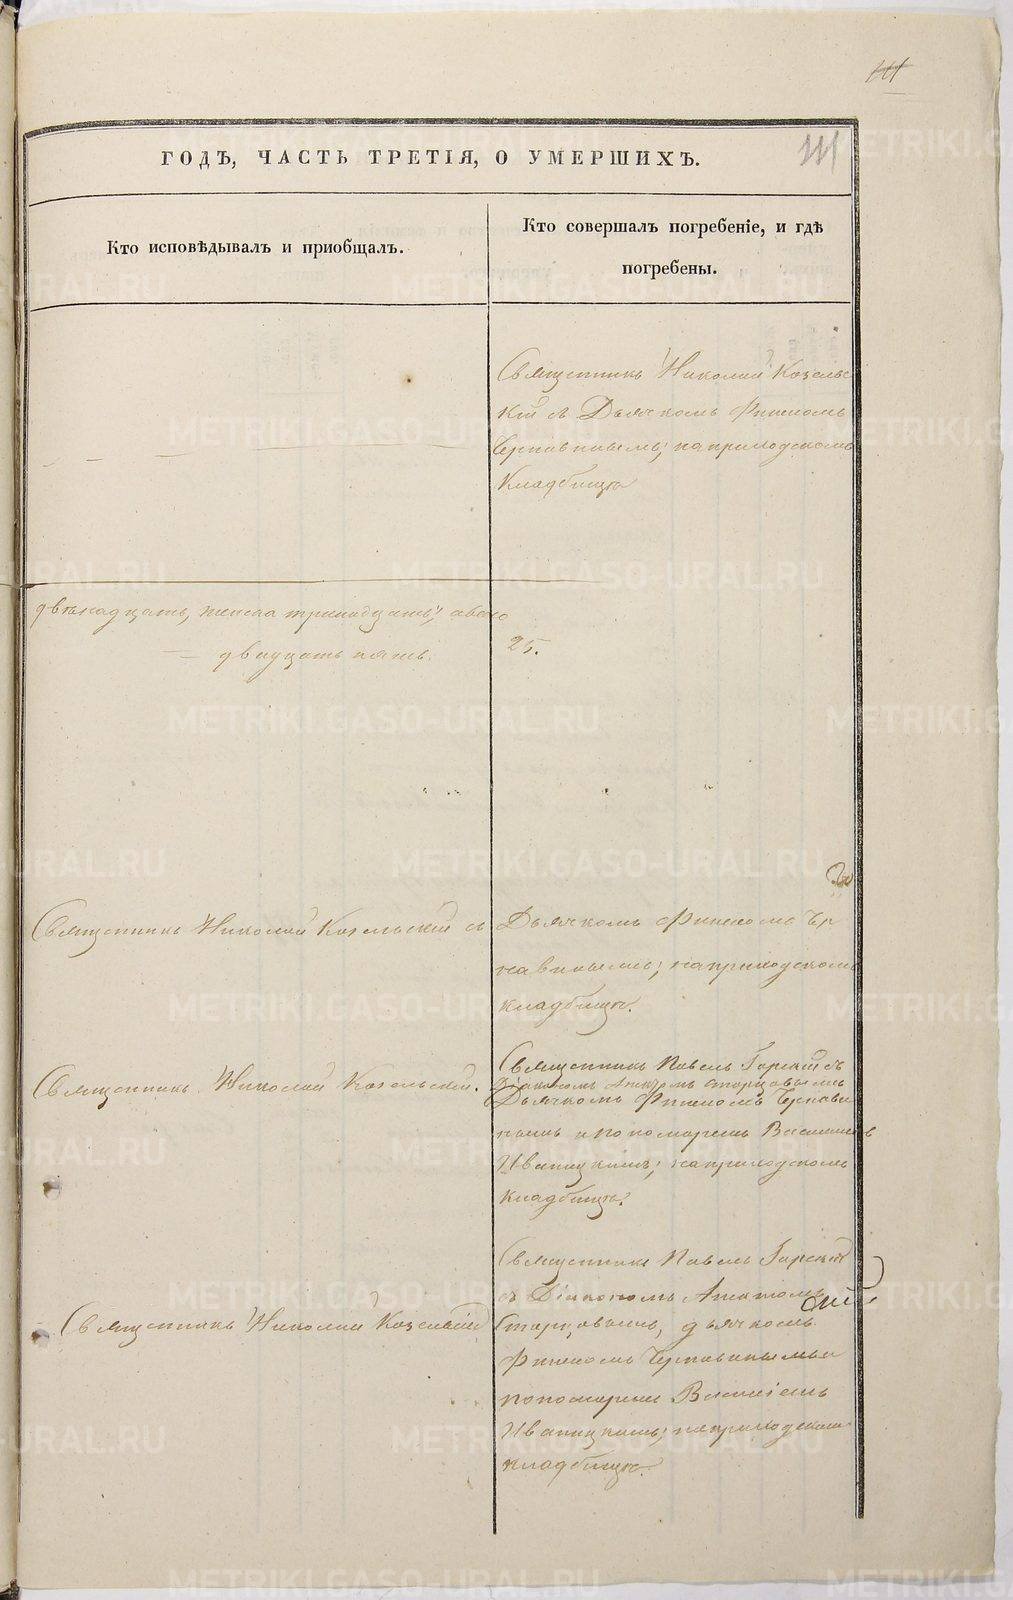 111
111
ГОДЪ, ЧАСТЬ ТРЕТІЯ, О УМЕРШИХЪ.
Кто исповѣдывалъ и пріобщалъ.
Кто совершалъ погребеніе, и гдѣ
погребены.
Священникъ Николай Козель
скій съ Дьячкомъ Финеомъ
Чернавинымъ; на приходскомъ
Кладбищѣ
двѣнадцать, женска тринадцать, обоего
двадцать пять.
25.
Священникъ Николай Козельскій съ
Дьячкомъ Финеомъ Чер
навинымъ; на приходскомъ
кладбищѣ.
Священникъ Николай Козельскій.
Священникъ Павелъ Горскій съ
Діакономъ Старцовымъ
Дьячкомъ Финеомъ Чернави
нымъ и пономаремъ Василіемъ
Иваницкимъ; на приходскомъ
кладбищѣ.
Священникъ Николай Козельскій
Священникъ Павелъ Горскій
съ Діакономъ
Старцовымъ, дьячкомъ
Финеомъ Чернавинымъ и
пономаремъ Василіемъ
Иваницкимъ; на приходскомъ
кладбищѣ.
METRIKI.GASO-URAL.RU